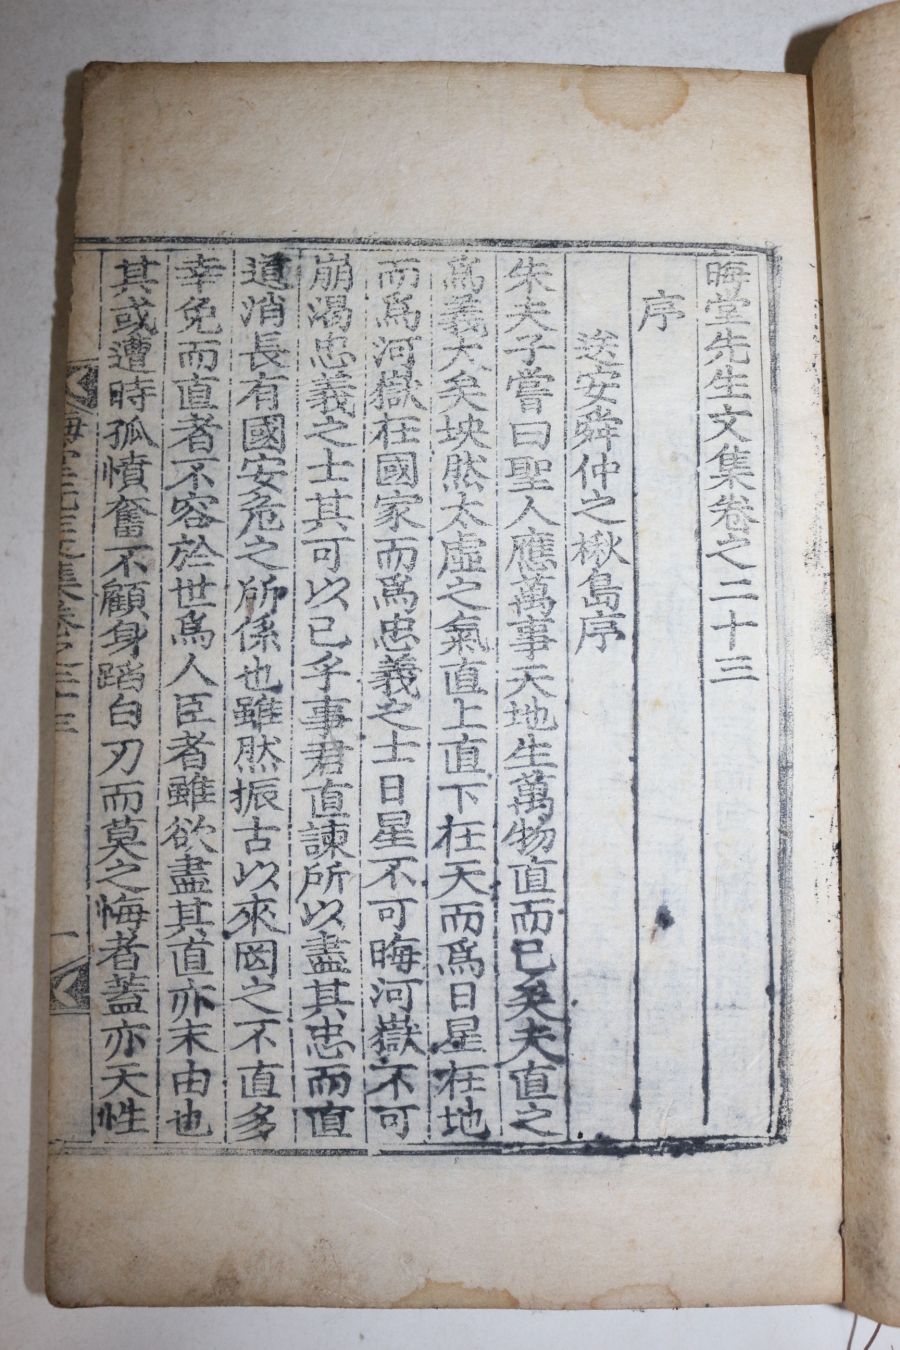 晦堂先生文集卷之二十三
序
送安舜仲之楸島序
朱夫子嘗曰聖人應萬事天地生萬物直而已矣夫直之
爲義大矣坱然太虛之氣直上直下在天而爲日星在地
而爲河嶽在國家而爲忠義之士日星不可晦河嶽不可
崩渴忠義之士其可以已乎事君直諫所以盡其忠而直
道消長有國安危之所係也雖然振古以來罔之不直多
幸免而直者不容於世爲人臣者雖欲盡其道亦末由也
其或遭時孤憤奮不顧身蹈白刃而莫之悔者蓋亦天性
晦堂先生文集卷之二十三
一